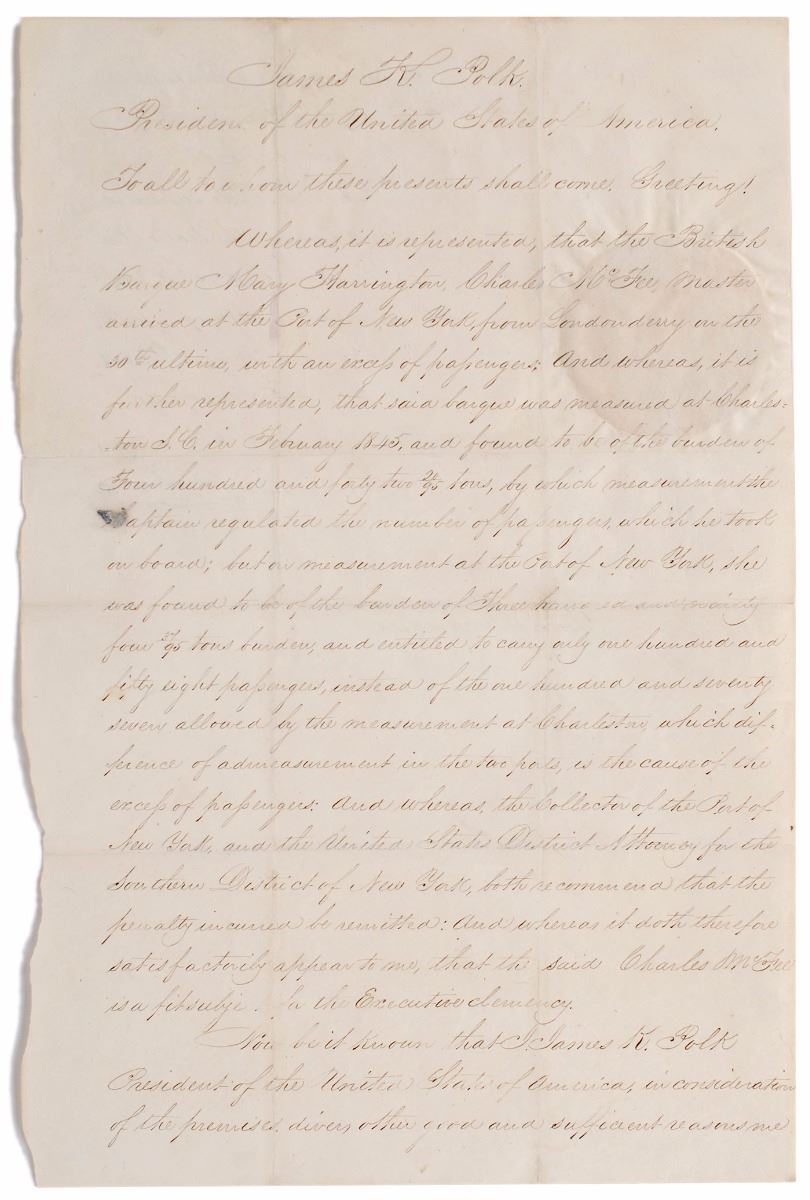 James K. Polk.
President of the United States of America,
To all to whom these presents shall come, Greeting!
Whereas, it is represented, that the British
Barque Mary Harrington, Charles McFee, Master
arrived at the Port of New York, from Londonderry on the
30th ultimo, with an excess of passengers: And whereas, it is
further represented, that said barque was measured at Charles=
ton S.C. in February 1845, and found to be of the burden of
Four hundred and forty two /95 tons, by which measurement the
Captain regulated the number of passengers, which he took
on board; but on measurement at the Port of New York, she
was found to be of the burden of Three hundred and ninety
four /95 tons burden, and entitled to carry only one hundred and
fifty eight passengers, instead of the one hundred and seventy
seven allowed by the measurement at Charleston, which dif-
ference of admeasurement in the two ports, is the cause of the
excess of passengers: And whereas, the Collector of the Port of
New York, and the United States District Attorney for the
Southern District of New York, both recommend that the
penalty incurred be remitted: And whereas it doth therefore
satisfactorily appear to me, that the said Charles McFee
is a fit subject for the Executive clemency.
Now be it known that I, James K. Polk
President of the United States of America, in consideration
of the premises, divers other good and sufficient reasons me